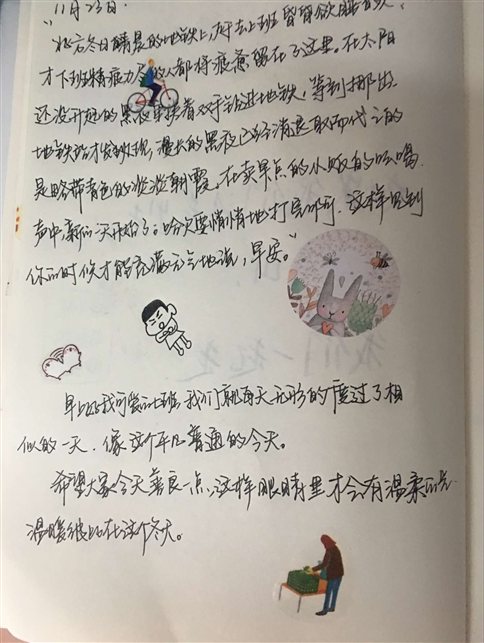 11月23日.
"北方冬日清晨的地铁上,对于去上班昏昏欲睡的人,
才下班精疲力尽的人都将疲惫留在了这里。在太阳
还没升起的黑夜里搓着双手钻进地铁,等到挪出
地铁站才发现,漫长的黑夜已经消退取而代之的
是略带青色的淡淡朝霞,在卖早点的小贩的吆喝
声中新的一天开始了。哈欠要悄悄地打完即可.这样见到
你的时候才能充满元气地说,早安。"
早上好我可爱的班,我们就每天无形的度过了相
似的一天.像这个平凡普通的今天。
希望大家今天善良一点,这样眼睛里才会有温柔的光
温暖彼此在这个冬天。